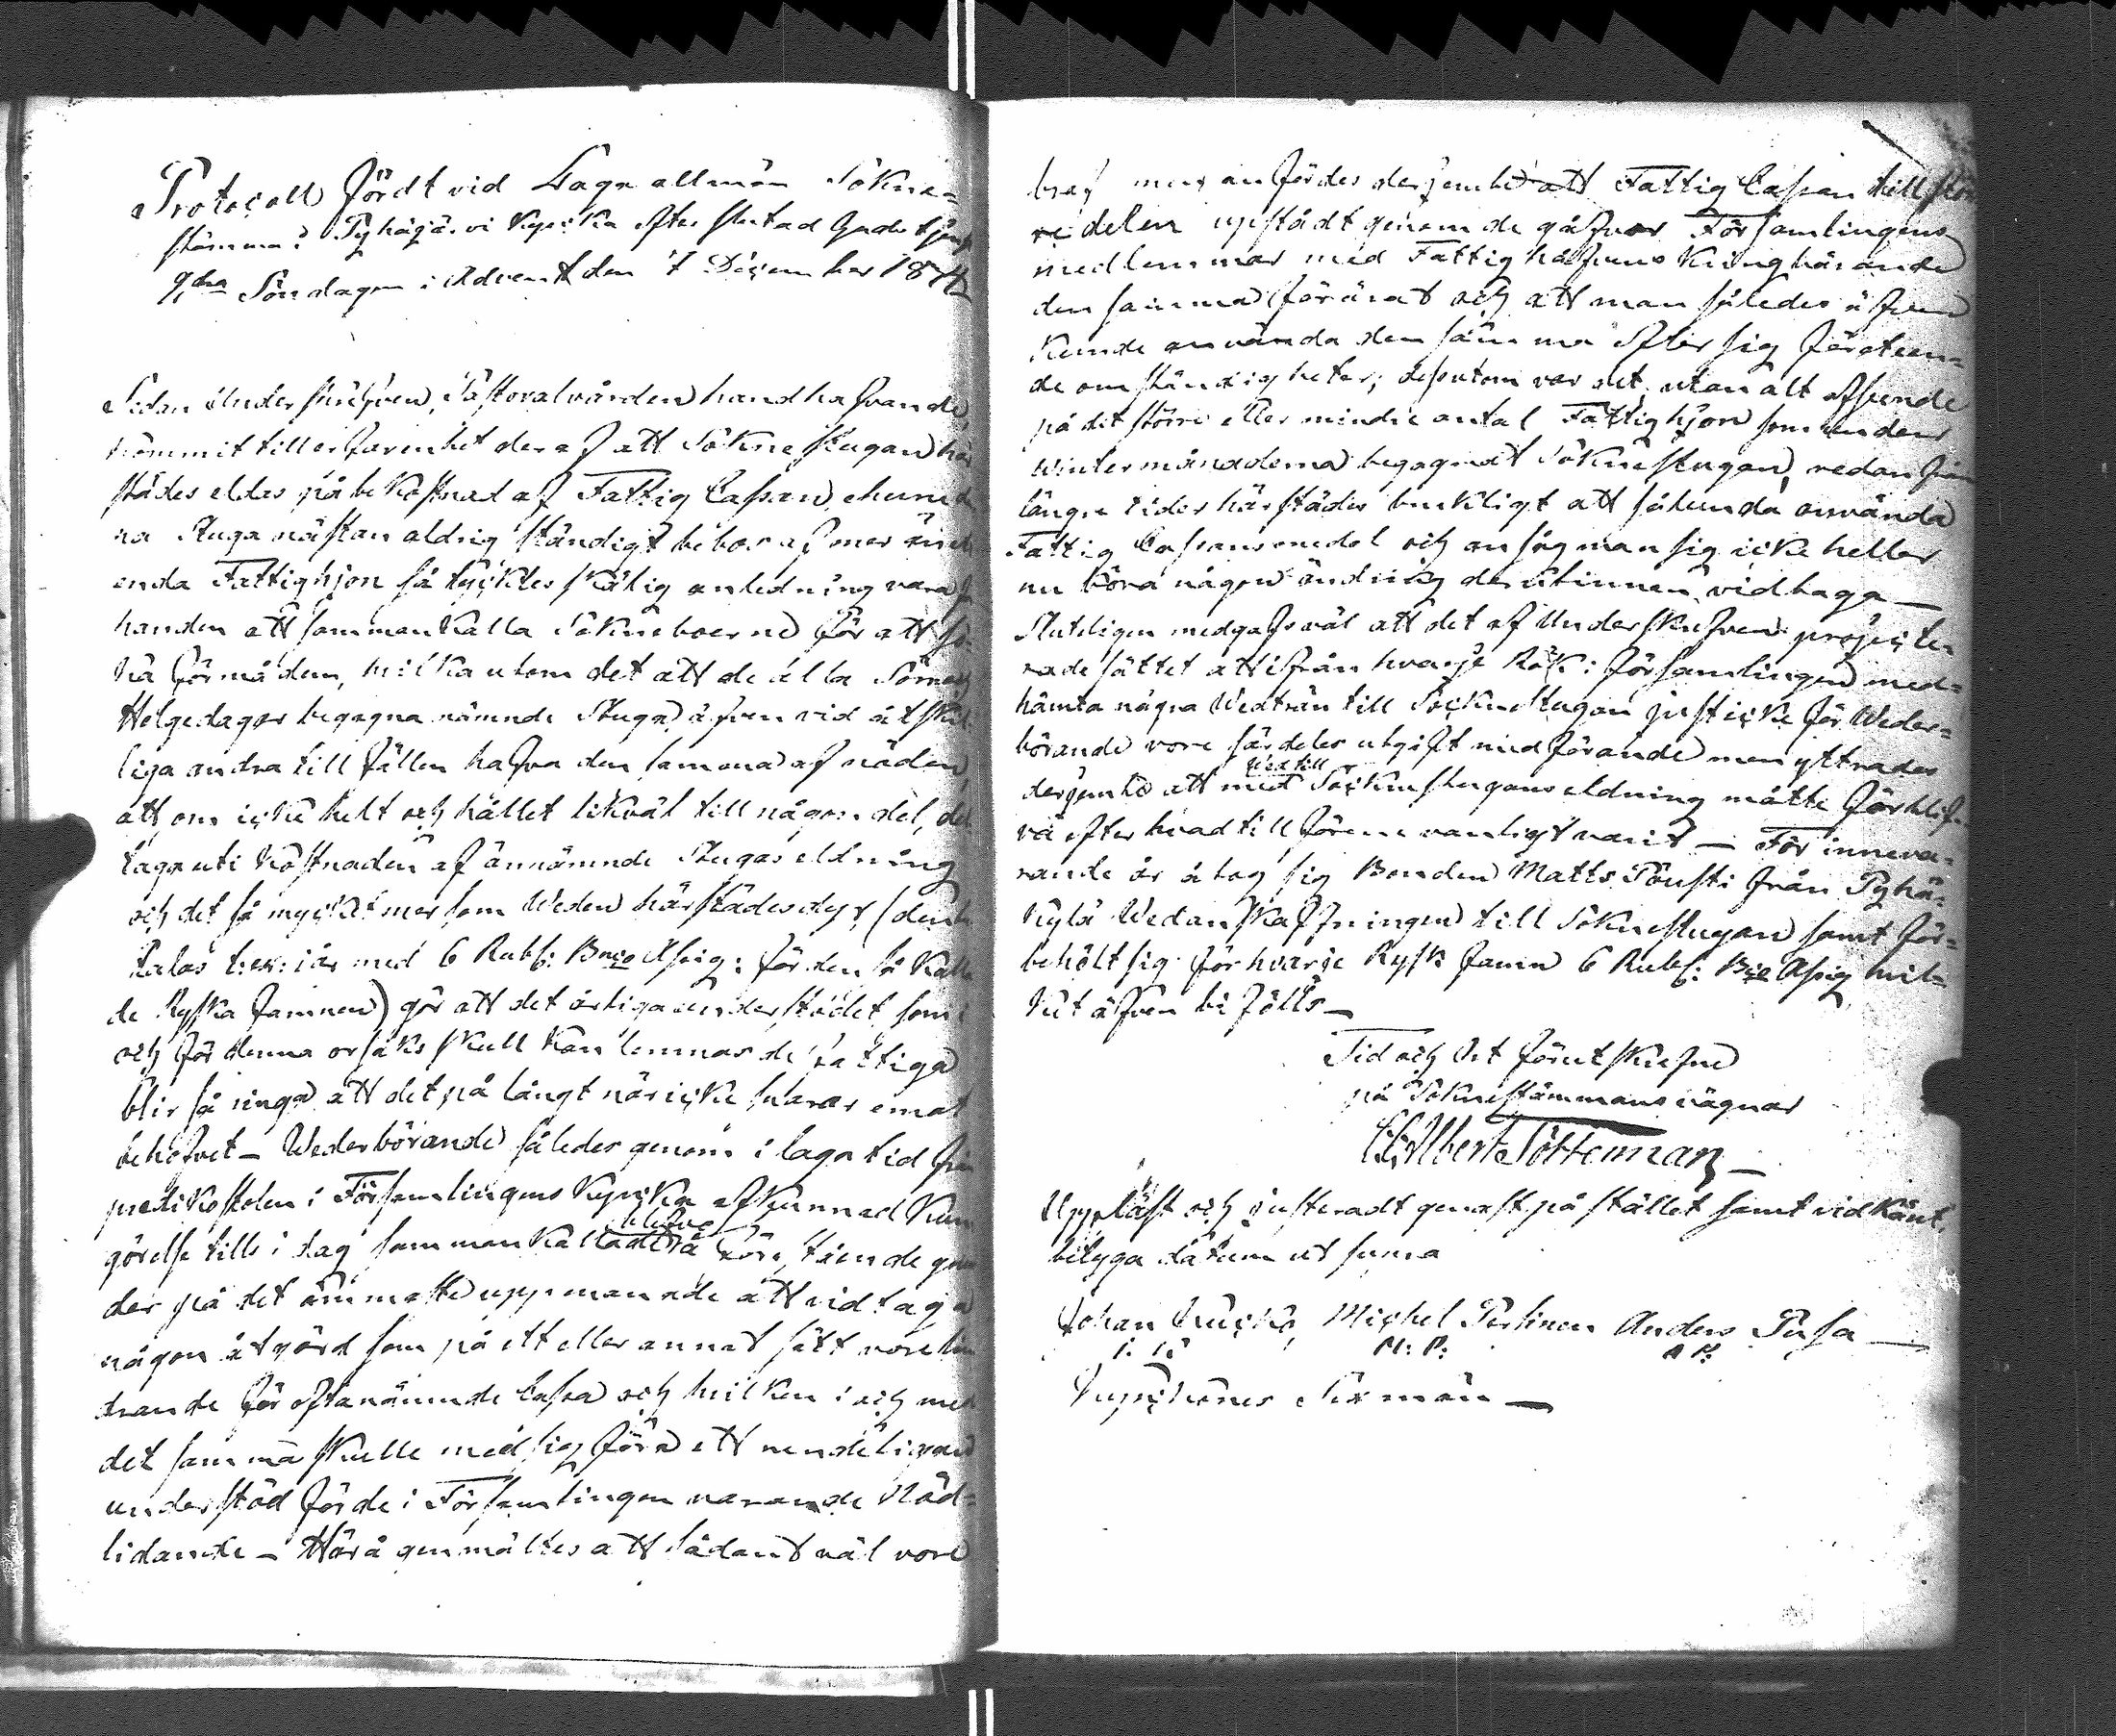 Protocoll fördt vid Laga allmän Sokne-
stämma i Pyhäjärvi Kyrcka efter slutad Gudstjenst
2dra Söndagen i Advent den 7 December 18
Sedan Underskrefven, Pastoralvården handhafvande,
kommit till erfarenhet deraf att Soknestugan här
städes eldas på bekostnad af Fattig Cassan, ehuru den
na Stuga nästan aldrig ständigt bebos af mer än ett
enda Fattighjon så tycktes skälig anledning vara för
handen att sammankalla Sokneboerne för att sö-
ka förmå dem, hvilka utom det att de alla Sönoch
Helgedagar begagna nämnde Stuga, äfven vid åtskil
liga andra tillfällen hafva den samma af nöden,
att om icke helt och hållet likväl till någon del, del
taga uti kostnaden af ännämnde Stugas eldning
och det så mycket mer som Weden härstädes dyr (den be
talas t: ex: i år med 6 Rub: Bnco Assig: för den så kalla
de Ryska famnen) gör att det årliga understödet som
och för denna orsaks skull kan lemnas de fattiga
blir så ringa att det på långt när icke svarar emot
behofvet – Wederbörande således genom i laga tid från
predikostolen i Församlingens Kyrcka afkunnad Kun
görelse tills i dag sammankallade blefvo
der på det ömmaste uppmanade att vidtaga
någon åtgärd som på ett eller annat sätt vore
drande för oftanämnde Cassa och hvilken i och med
det samma skulle med sig föra ett
understöd för de i Församlingen varande Nöd-
lidande – Härå genmältes att sådant väl vore
men anfördes derjemte att Fattig Cassan till stör
re delen uppstådt genom de gåfvor Församlingens
medlemmar med Fattighåfvens kringbärande
den samma förärat och att man således äfven
kunde använda den samma efter sig företeen-
de omständigheter; dessutom var det utan alt afseende
på det större eller mindre antal Fattighjon som under
Wintermånaderna begagnat Soknestugan, redan från
längre tider härstädes brukligt att sålunda använda
Fattig Cassans medel och ansåg man sig icke heller
nu böra någon ändring derutinnan vidtaga –
Slutligen medgafs väl att det af Underskrefven projecte
rade sättet att ifrån hvarje Rök i församlingen med-
hämta några Wedträn till Sockenstugan just icke för Weder-
börande vore särdeles utgift medförande men yttrades
derjemte att med Wed till Sockenstugans eldning måtte förblif
va efter hvad till förene vanligt varit – För inneva-
rande år åtog sig Bonden Matts från Pyhä-
kylä Wedanskaffningen till Soknestugan samt för-
behölt sig för hvarje Rysk famn 6 Rub: Bco Assig hvil-
ket äfven bifölls –
Tid och Ort förutskrefne
på Soknestämmans vägnar
Albert Töttermän –
Uppläst och justeradt genast på stället samt vidkänt,
betyga datum ut supra
Johan Michel Anders
M: P: A P:
Sexmän –